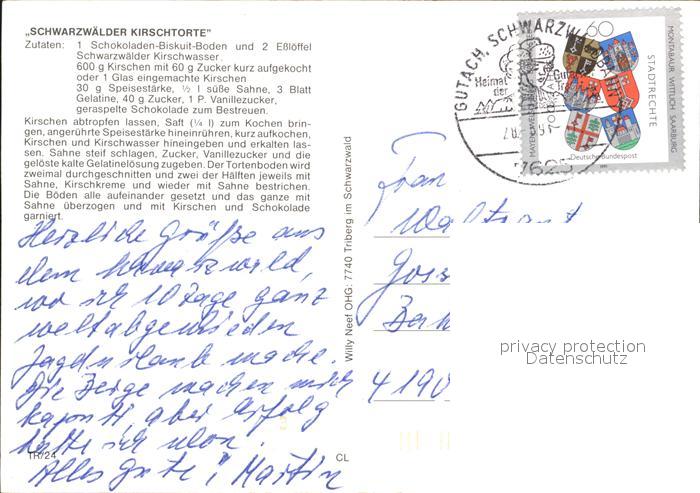 „SCHWARZWÄLDER KIRSCHTORTE"
Zutaten: 1 Schokoladen-Biskuit-Boden und 2 Eßlöffel
Schwarzwälder Kirschwasser.
600 g Kirschen mit 60 g Zucker kurz aufgekocht
oder 1 Glas eingemachte Kirschen
30 g Speisestärke, ½ l süße Sahne, 3 Blatt
Gelatine, 40 g Zucker, 1 P. Vanillezucker,
geraspelte Schokolade zum Bestreuen.
Kirschen abtropfen lassen, Saft (¼ l) zum Kochen brin-
gen, angerührte Speisestärke hineinrühren, kurz aufkochen,
Kirschen und Kirschwasser hineingeben und erkalten las-
sen. Sahne steif schlagen, Zucker, Vanillezucker und die
gelöste kalte Gelatinelösung zugeben. Der Tortenboden wird
zweimal durchgeschnitten und zwei der Hälften jeweils mit
Sahne, Kirschkreme und wieder mit Sahne bestrichen.
Die Böden alle aufeinander gesetzt und das ganze mit
Sahne überzogen und mit Kirschen und Schokolade
garniert.
Herzliche Grüße aus
dem Schwarzwald,
wo ich 10 Tage ganz
weltabgeschieden
Jagdurlaub mache.
Die Berge machen mich
kaputt, aber Erfolg
hatte ich schon.
Alles Gute! Martin
TR/24
CL
Willy Neef OHG: 7740 Triberg im Schwarzwald
Frau
Waltraut
Goss
4190
GUTACH, SCHWARZWALDBAHN
Heimat
der
7623
60
STADTRECHTE
MONTABAUR WITTLICH SAARBURG
MAYEN
Deutsche Bundespost
privacy protection
Datenschutz